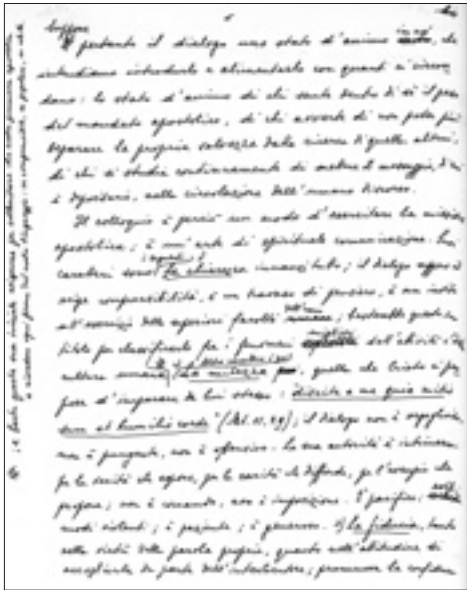 Suppone
pertanto il dialogo uno stato d'animo in noi, che
intendiamo introdurre e alimentare con quanti ci circon
dano: lo stato d'animo di chi sente dentro di sé il peso
del mandato apostolico, di chi avverte di non poter più
separare la propria salvezza dalla ricerca di quella altrui,
di chi si studia continuamente di mettere il messaggio, di cui
è depositario, nella circolazione dell'umano discorso.
Il colloquio è perciò un modo d'esercitare la missione
apostolica; è un'arte di spirituale comunicazione. Suoi
caratteri sono i seguenti La chiarezza innanzi tutto; il dialogo
esige comprensibilità, è un travaso di pensiero, è un invito
all'esercizio delle superiori facoltà dell'uomo; basterebbe questo
titolo per classificarlo fra i fenomeni migliori dell'attività e
cultura umana. La mitezza, quella che Cristo ci
pose d'imparare da lui stesso: discite a me quia mitis
sum et humilis corde" (Mt. 11, 29); il dialogo non è orgoglioso,
non è pungente, non è offensivo. La sua autorità è intrinseca
per la verità che espone, per la carità che diffonde, per l'esempio che
propone; non è comando, non è imposizione. È pacifico;
modi violenti; è paziente; è generoso. La fiducia, tanto
nella virtù della parola propria, quanto nell'attitudine di
accoglierla da parte dell'interlocutore; promuove la confidenza